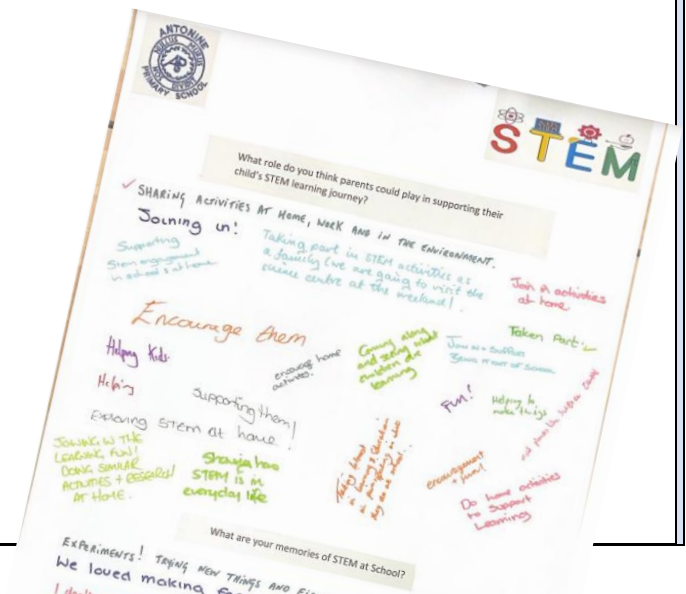 ANTONINE
PRIMARY SCHOOL
STEM
What role do you think parents could play in supporting their
child's STEM learning journey?
SHARING ACTIVITIES AT HOME, WORK AND IN THE ENVIRONMENT.
Joining in!
Supporting
Stem engagement
in school & at home
Taking part in STEM activities as
a family (we are going to visit the
science centre at the weekend!
Join in activities
at home
Encourage them
Taken Part
Helping Kids
encourage home
activities.
Coming along
and seeing what
children are
learning
Helping
Supporting them!
Fun!
Helping to
make things
Exploring STEM at home!
JOINING IN THE
LEARNING FUN!
DOING SIMILAR
ACTIVITIES + RESEARCH
AT HOME.
Showing how
STEM is in
everyday life
encouragement
+ fun!
Do home activities
to Support
Learning
What are your memories of STEM at School?
EXPERIMENTS! TRYING NEW THINGS AND
We loved making